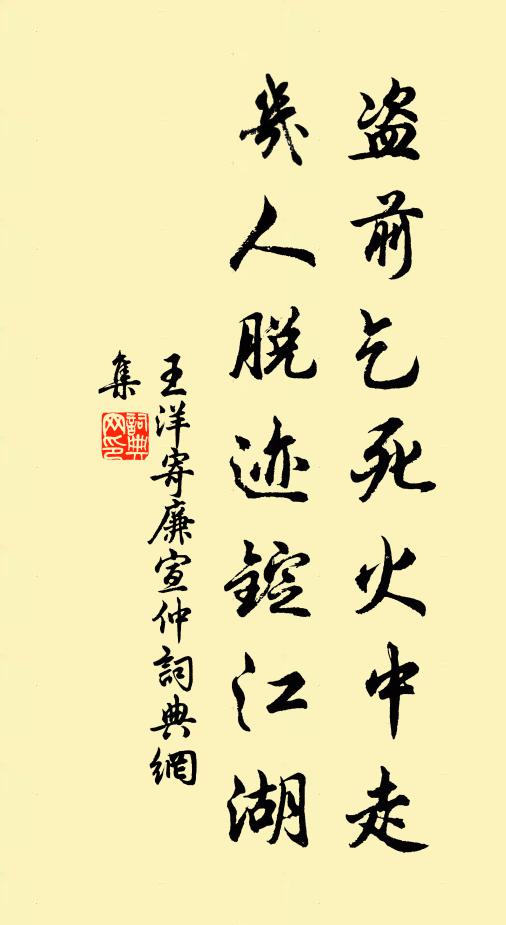 盗前乞死火中走
几人脱迹锭江湖
王洋寄廉宣仲詞典網
集
詞典
网印